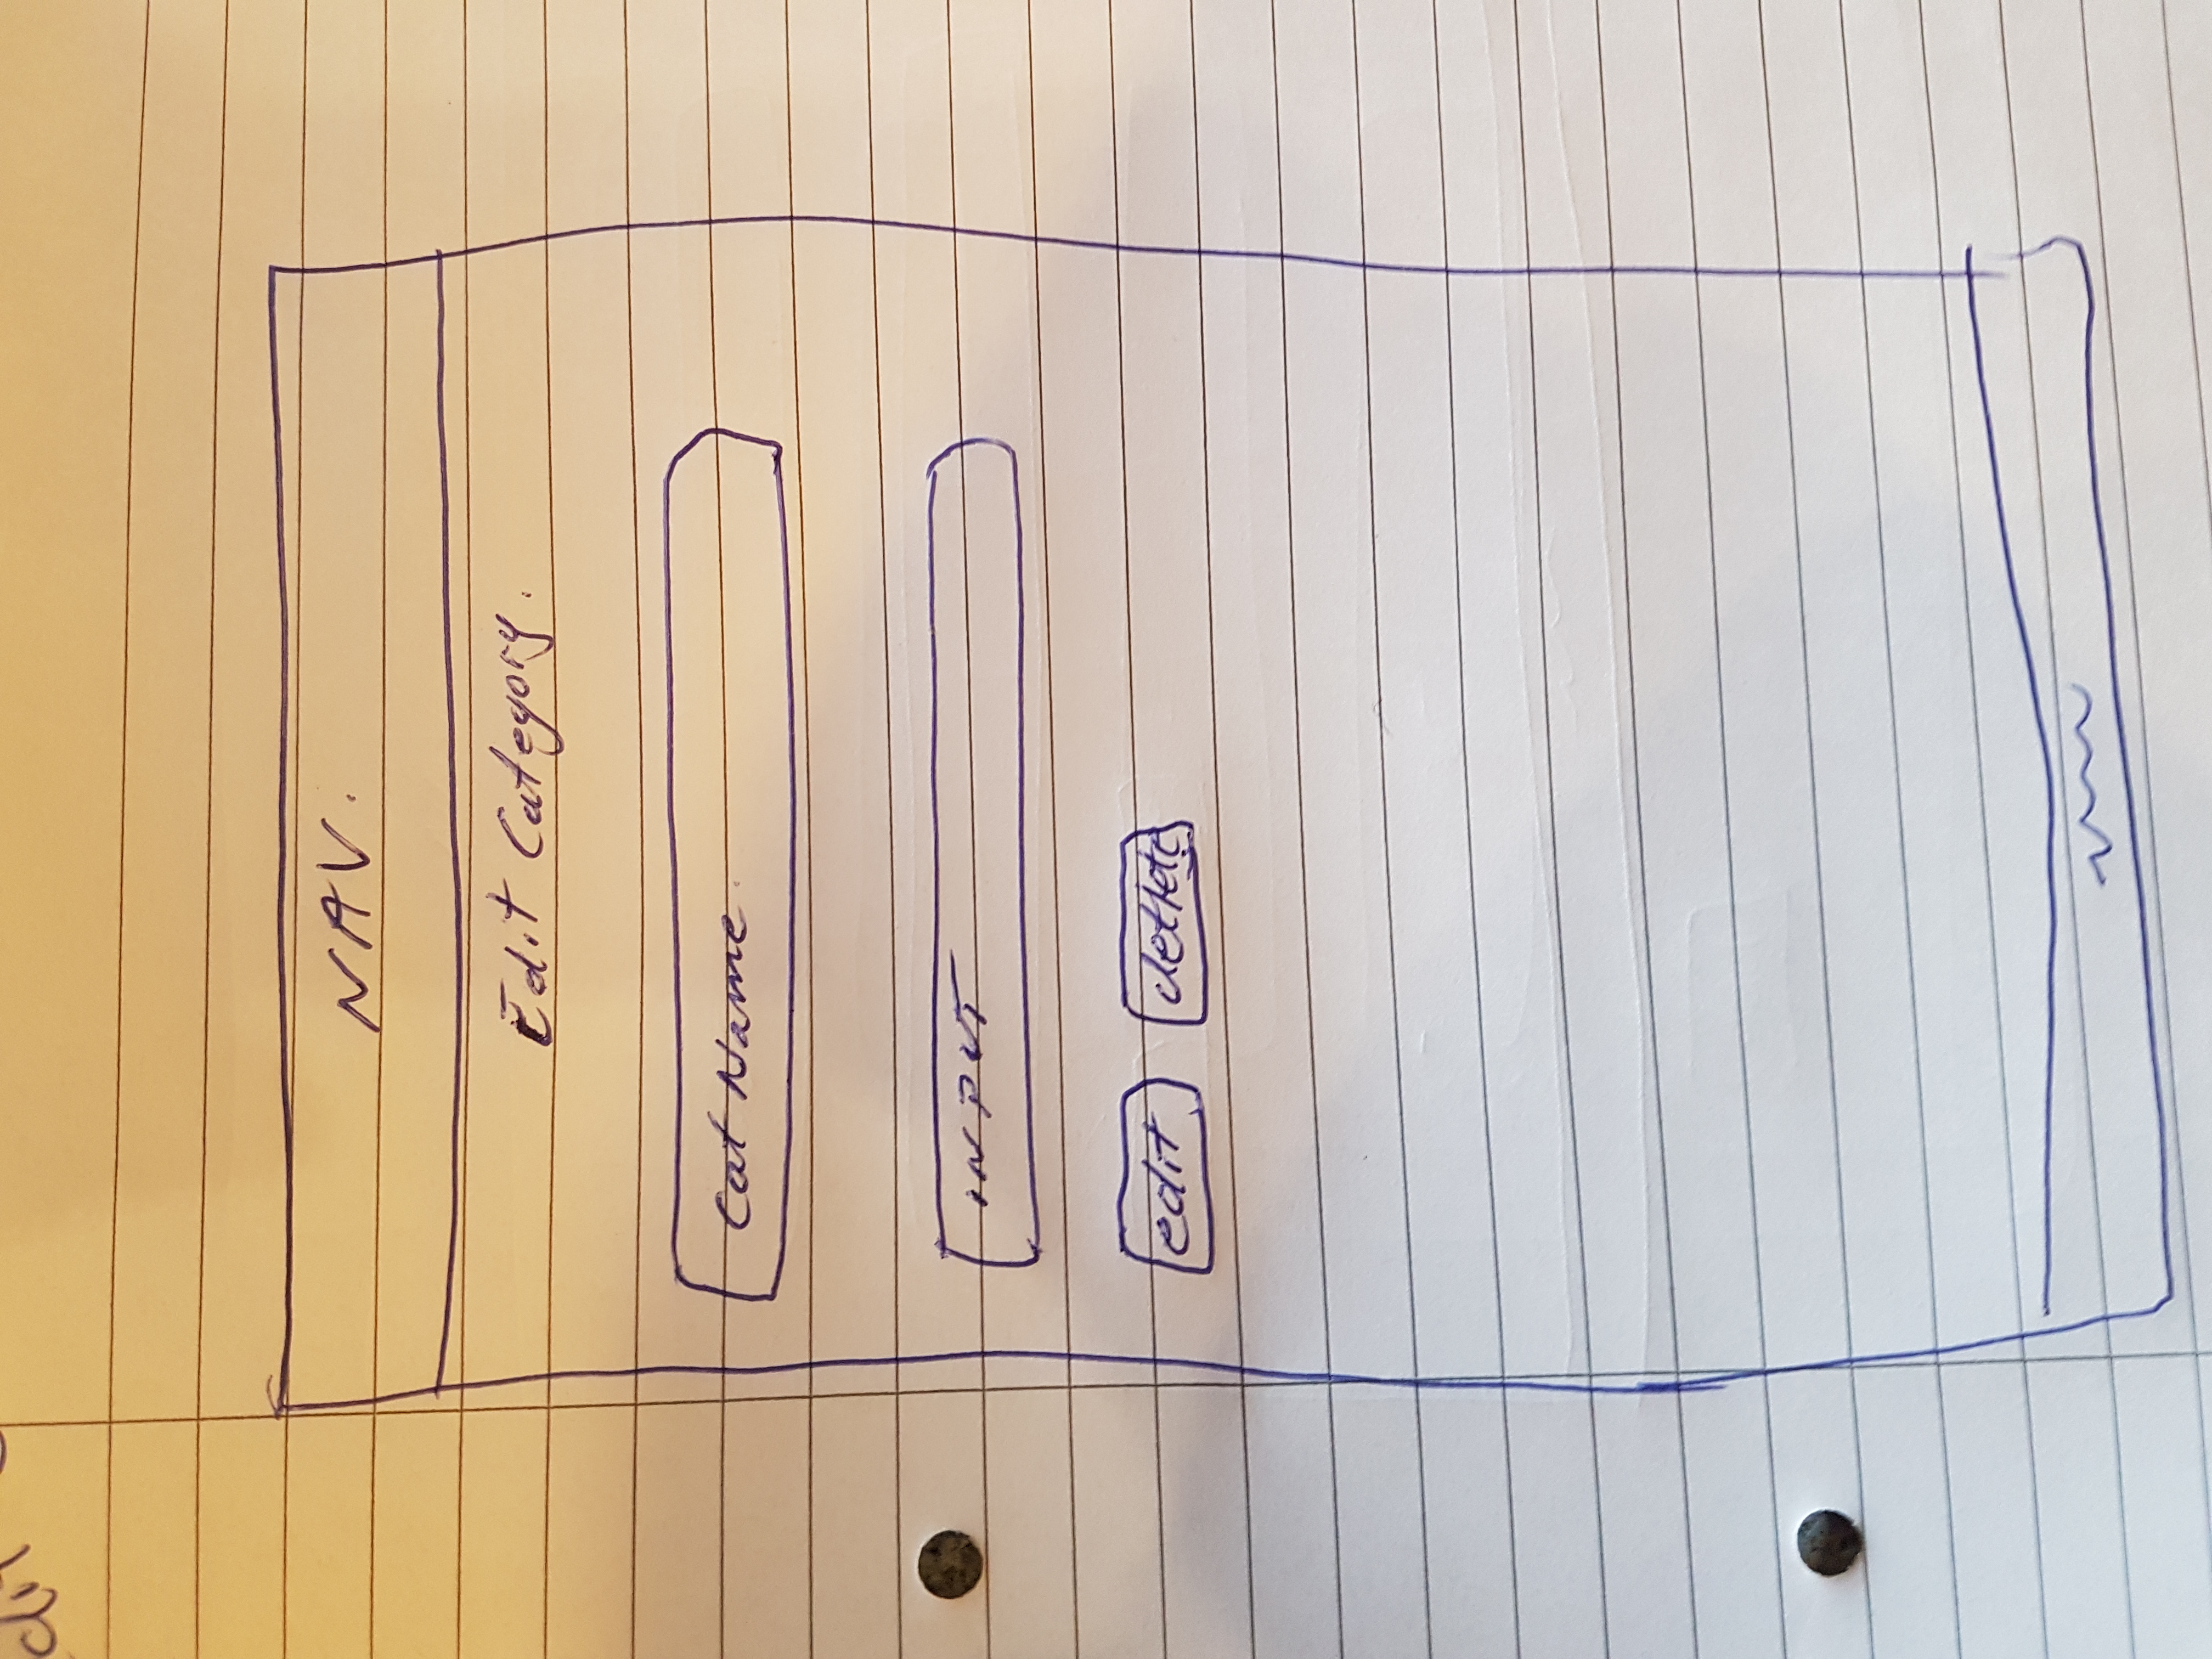 dit
NAV.
Edit Category.
Cat Name.
INPUT
edit dellete